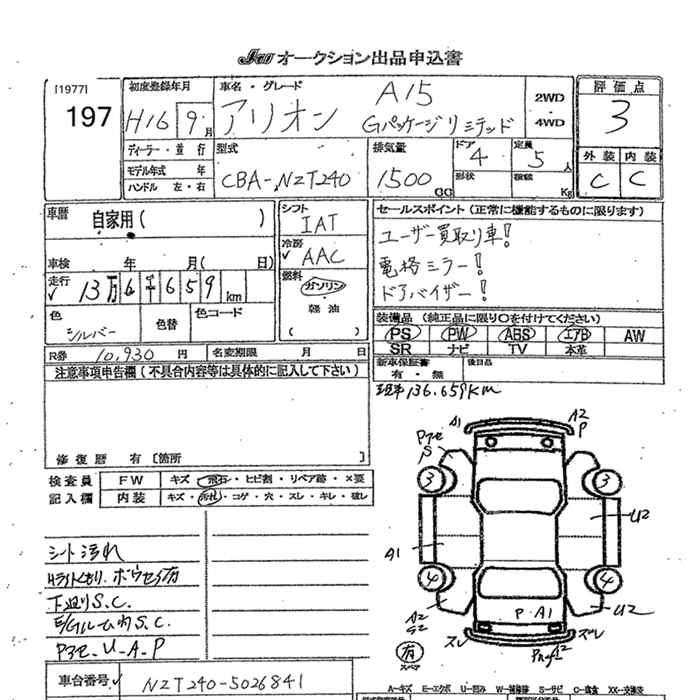 JAA オークション出品申込書
[1977]
197
初度登録年月
H16 9月
車名・グレード
アリオン A15
Gパッケージリミテッド
2WD
・
4WD
評価点
3
外装 内装
C C
ディーラー・並行
モデル年式 年
ハンドル 左・右
型式
CBA-NZT240
排気量
1500 CC
ドア
4
形状
定員
5人
積載
Kg
車歴
自家用( )
車検 年 月( 日)
走行
✓ 13万6千659km
色
シルバー
色替
色コード
シフト
IAT
冷房
✓ AAC
燃料
ガソリン
・
軽油
( )
セールスポイント(正常に機能するものに限ります)
ユーザー買取り車!
電格ミラー!
ドアバイザー!
装備品(純正品に限り○を付けてください)
PS PW ABS エアB AW
SR ナビ TV 本革
R券 10,930円 名変期限 月 日
新車保証書
有・無
後日品
注意事項申告欄(不具合内容等は具体的に記入して下さい)
136.659KM
修復歴 有〔箇所 〕
検査員
記入欄
FW キズ・飛石・ヒビ割・リペア跡・×要
内装 キズ・汚れ・コゲ・穴・スレ・キレ・破レ
シート汚れ
下廻りS.C.
E/Gルーム内S.C.
Pアセ-U-A-P
A1
A2
P
Pアセ
S
3
3
A1
U2
4
4
A2
S2
P.A1
U2
ズレ
ズレ
有
スペア
車台番号 ✓ NZT240-5026841
A-キズ E-エクボ U-凹み W-補修跡 S-サビ C-腐食 XX-交換済